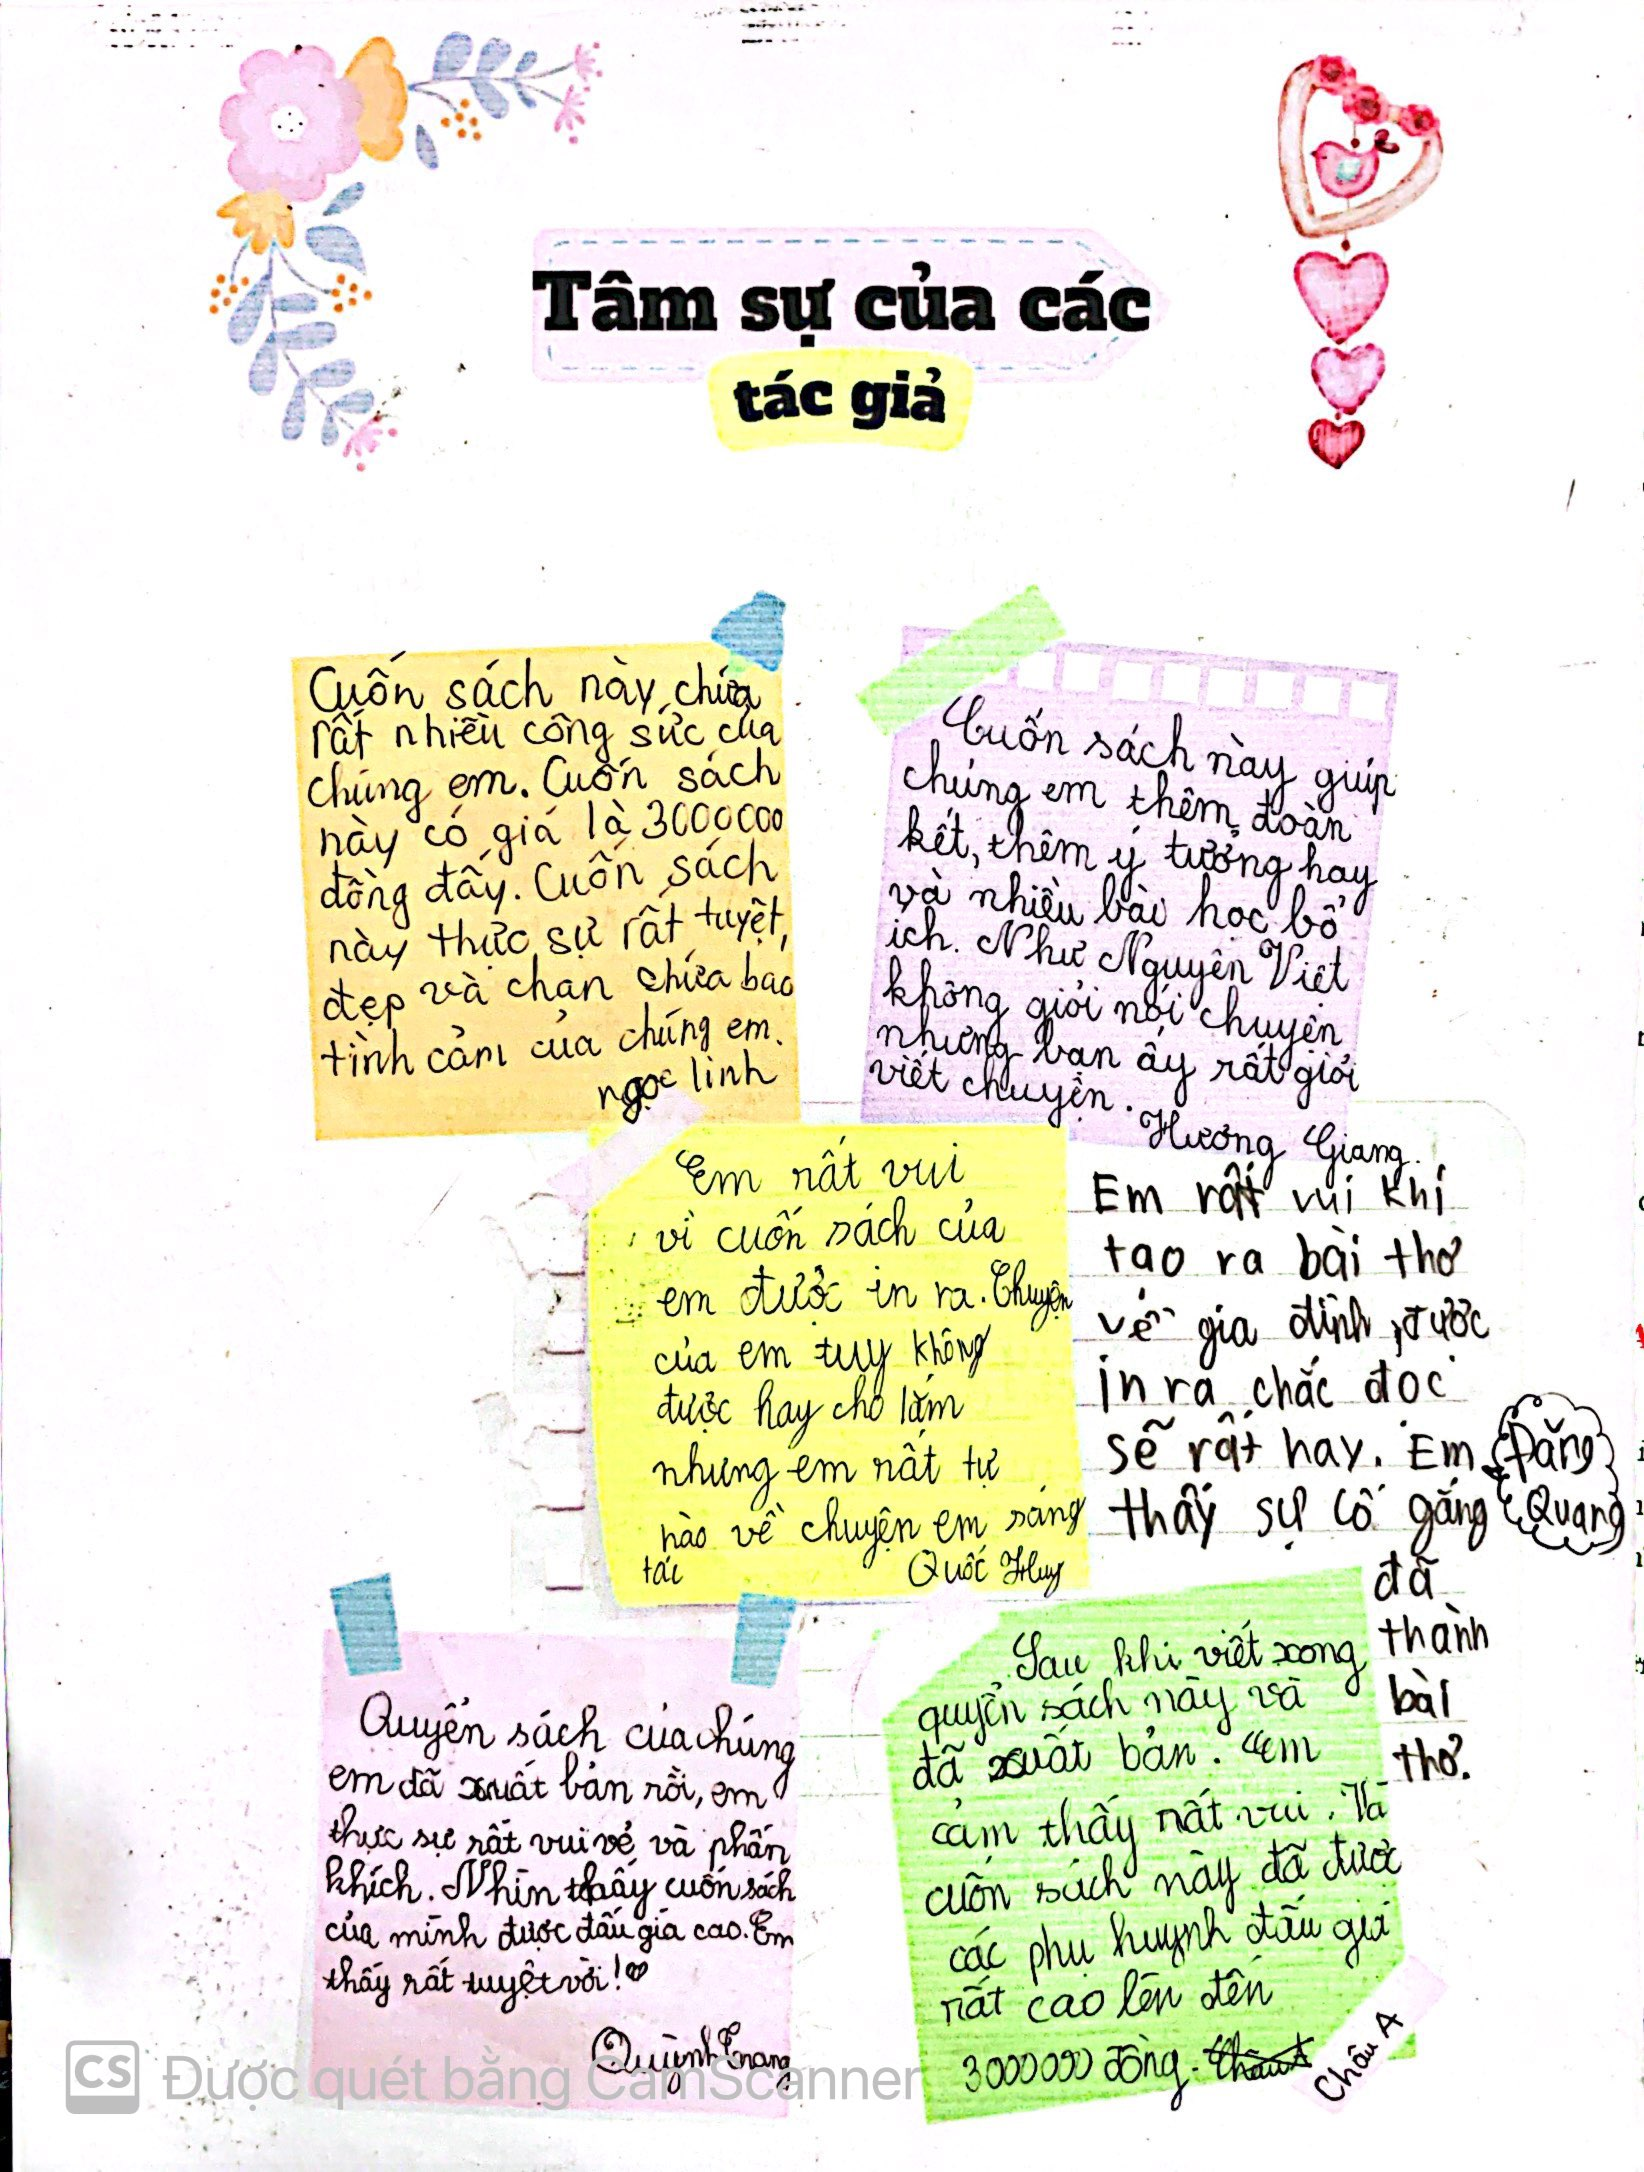 Tâm sự của các
tác giả
Cuốn sách này chứa
rất nhiều công sức của
chúng em. Cuốn sách
này có giá là 3000000
đồng đấy. Cuốn sách
này thực sự rất tuyệt,
đẹp và chan chứa bao
tình cảm của chúng em.
ngọc linh
Cuốn sách này giúp
chúng em thêm đoàn
kết, thêm ý tưởng hay
và nhiều bài học bổ
ích. Như Nguyên Việt
không giỏi nói chuyện
nhưng bạn ấy rất giỏi
viết chuyện.
Hương Giang.
Em rất vui
vì cuốn sách của
em được in ra. Chuyện
của em tuy không
được hay cho lắm
nhưng em rất tự
nào về chuyện em sáng
tác
Quốc Huy
Em rất vui khi
tạo ra bài thơ
về gia đình, được
in ra chắc đọc
sẽ rất hay. Em
thấy sự cố gắng
đã
thành
bài
thơ.
Đăng
Quang
Quyển sách của chúng
em đã xuất bản rồi, em
thực sự rất vui vẻ và phấn
khích. Nhìn thấy cuốn sách
của mình được đấu giá cao. Em
thấy rất tuyệt vời!
Quỳnh Trang
Sau khi viết xong
quyển sách này và
đã xuất bản. Em
cảm thấy rất vui. Và
cuốn sách này đã được
các phụ huynh đấu giá
rất cao lên đến
3000000 đồng.
Châu A
CS Được quét bằng CamScanner